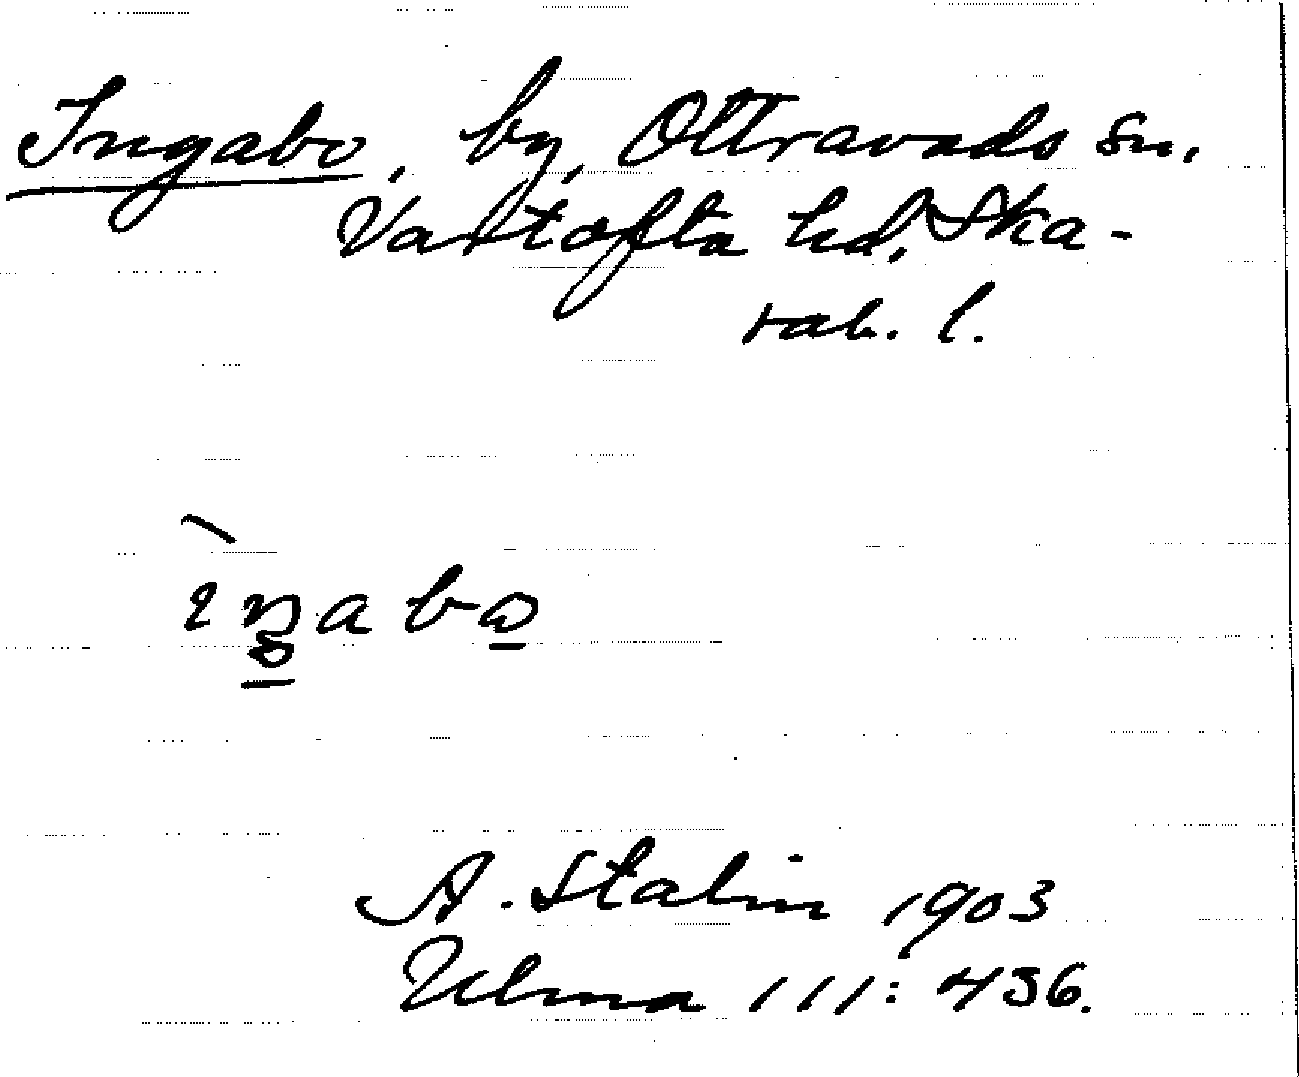 Ingabo, by, Ottravads sn,
Vartofta hd, Ska-
rab. l.
ìŋabo
A. Stalin 1903
Ulma 111:436.